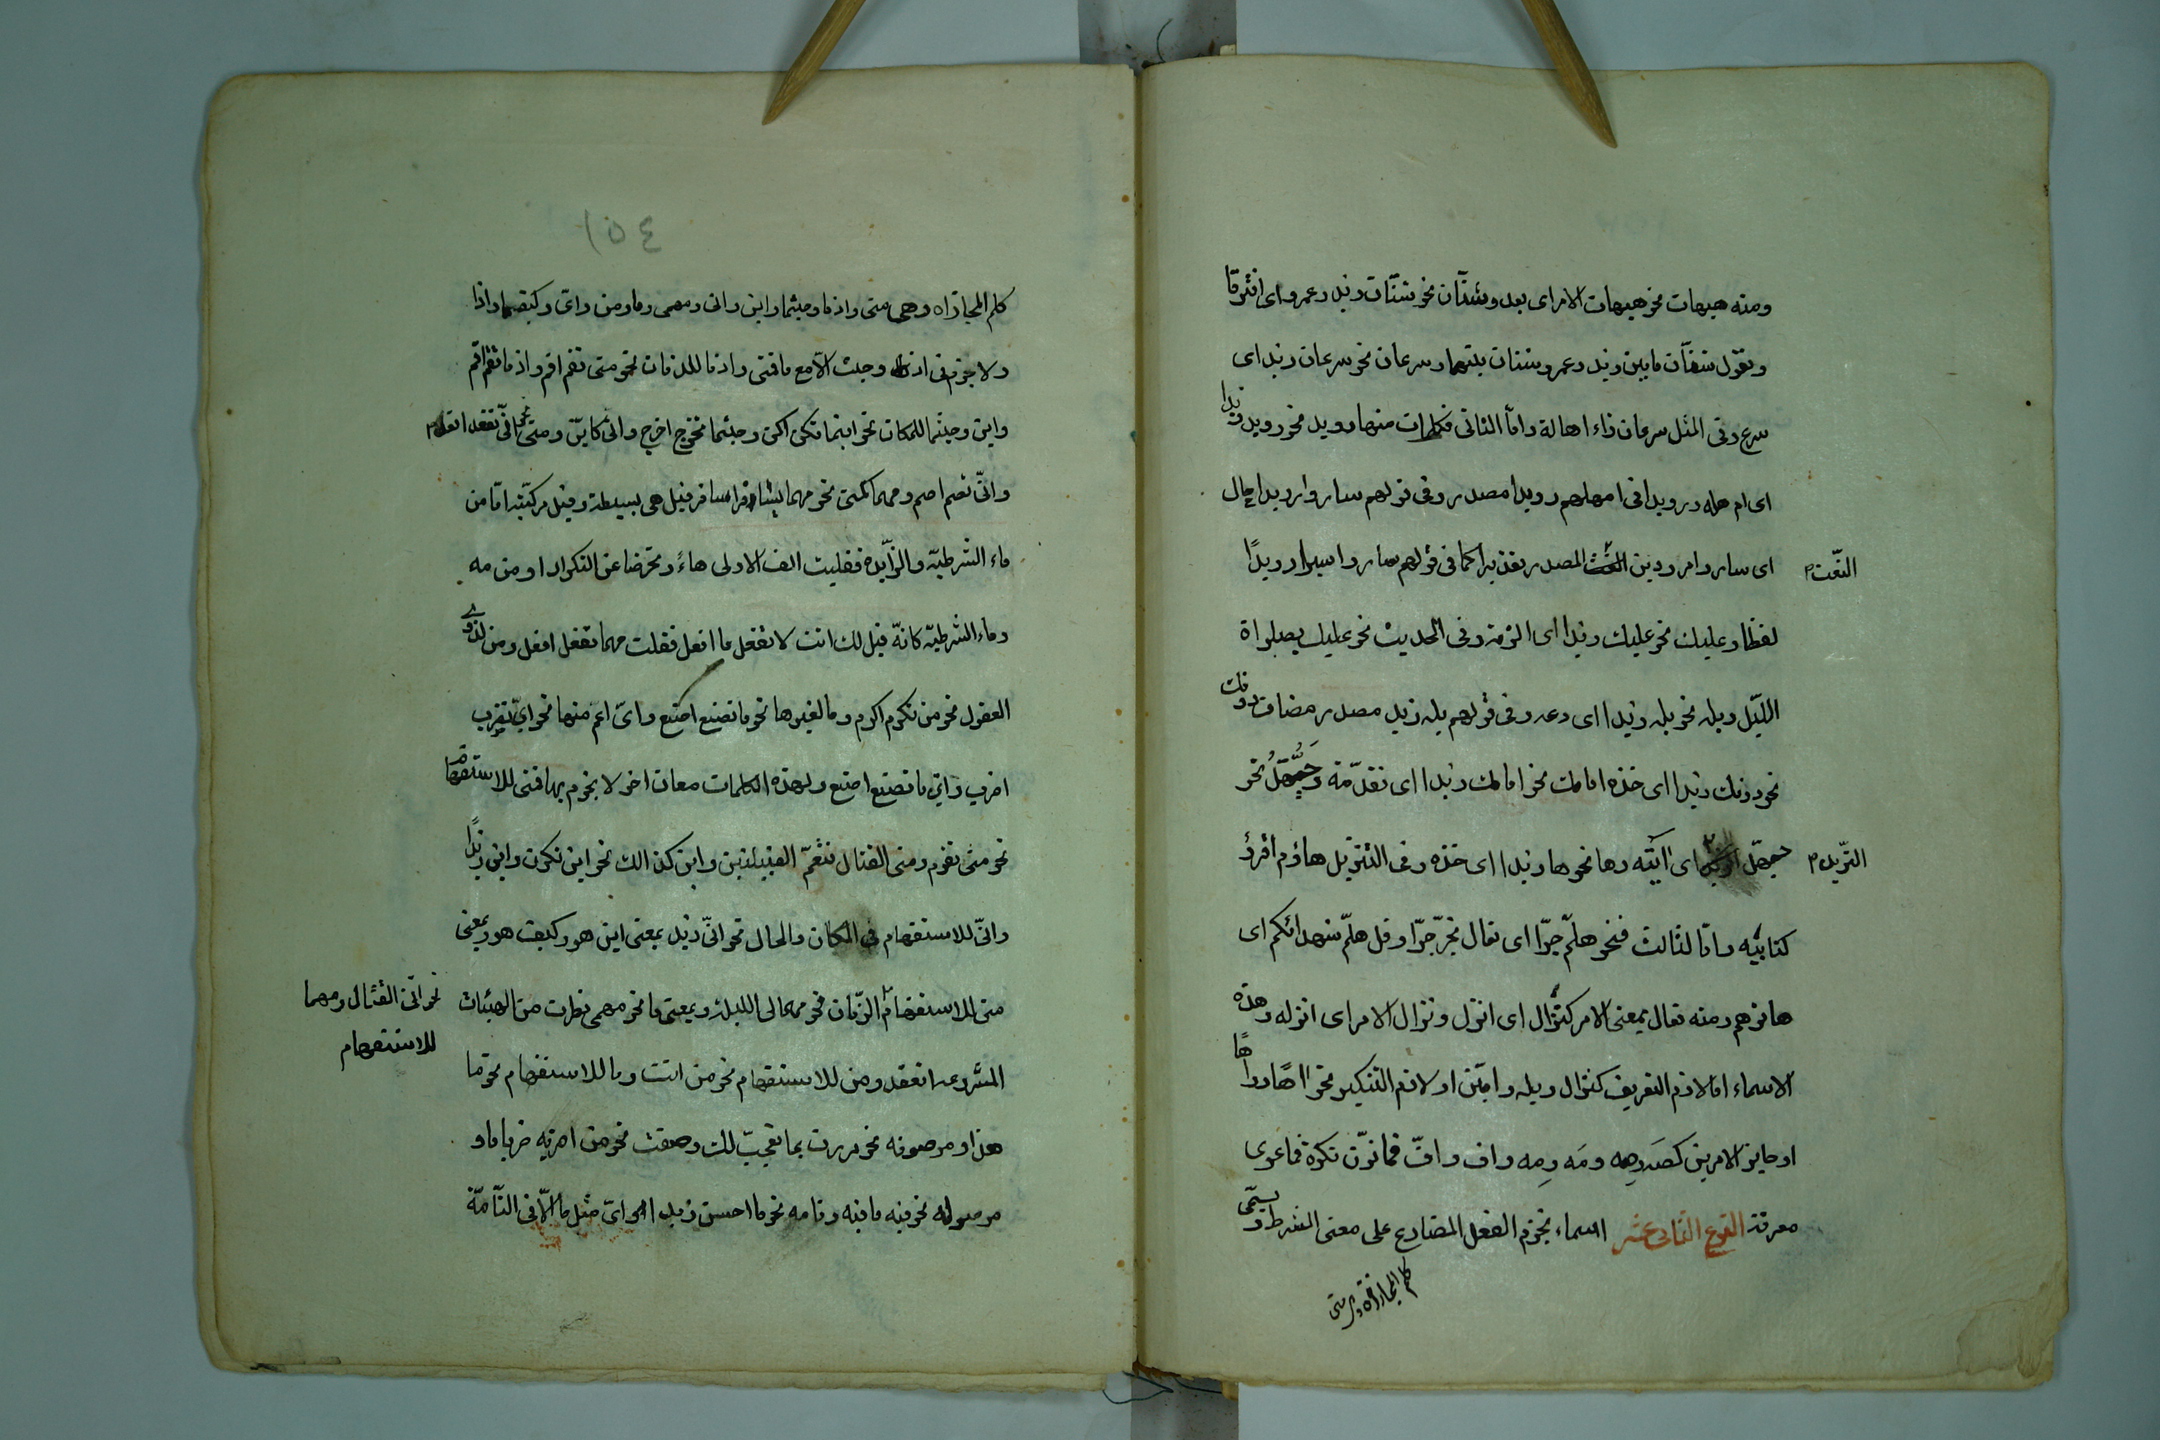 ومنه هيهات نحو هيهات الامر اى بعد وشتّان نحو شتّان زيد وعمرو اى افترقا
وتقول شتّان ما بين زيد وعمرو وشتان بينهما وسرعان نحو سرعان زيد اى
سرع وفى المثل سرعان ذاء اهالة وامّا الثانى فكلمات منها رويد نحو رويد زيدا
اى امهله ورويدا فى امهلهم رويدا مصدر وفى قولهم ساروا رويدا حال
اى ساروا مرودين النّعت المصدر تقديرا كما فى قولهم ساروا سيرا رويدًا
لفظا وعليك نحو عليك زيدا اى الزمه وفى الحديث نحو عليك بصلواة
اللّيل وبله نحو بله زيدا اى دعه وفى قولهم بله زيد مصدر مضاف ودونك
نحو دونك زيدا اى خذه امامك نحو امامك زيدا اى تقدّمه وحَيَّهَلُ نحو
حيهّل التّريد اى ايته وها نحو ها زيدا اى خذه وفى التنزيل هاؤم اقرؤ
كتابيه وامّا الثالث فنحو هلمّ جرّا اى تعال نجرّ جرّا وقل هلمّ شهدائكم اى
هاتوهم ومنه تعال بمعنى الامر كنزال اى انزل ونزال الامر اى انزله وهذه
الاسماء اما لازم التعريف كنزال وبله وامّين او لازم التنكير نحو اهًا وواهًا
او جايز الامرين كصَه وصِهٍ ومَه ومِه واف وافّ فما نوّن نكرة فما عرى
معرفة النوع الثانى عشر اسماء تجزم الفعل المضارع على معنى الشرط ويسمّى
كلم المجازاة وهى متى
كلم المجازاه وهى متى واذما وحيثما واين وانى ومهمى وما ومن واى وكيفما واذا
ولا جزم فى اذ وحيث الّا مع ما فمتى واذما للزمان نحو متى تقم اقم واذ ما تقم اقم
واين وحيثما للمكان نحو اينما تكن اكن وحيثما تخرج اخرج وانى كاين ومتى نحو انّى تقعد اقعد
وانّى تصم اصم ومهما كمتى نحو مهما تسافر اسافر قيل هى بسيطة وقيل مركّبة امّا من
ماء الشرطيّة والزّايدة فقلبت الف الاولى هاءً وتحرضا عن التكرار او من مه
وماء الشرطيّة كانّه قيل لك انت لا تفعل ما افعل فقلت مهما تفعل افعل ومن لذوى
العقول نحو من تكرم اكرم وما لغيرها نحو ما تصنع اصنع واىّ اعم منها نحو ايّ تضرب
اضرب وايّ ما تصنع اصنع ولهذه الكلمات معان اخر لا يجزم بها فمتى للاستفهام
نحو متى تقوم ومتى القتال فتعمّ القبيلتين واين كذالك نحو اين تكون واين زيدًا
وانّى للاستفهام فى المكان والحال نحو انّى زيد بمعنى اين هو وكيف هو وبمعنى
متى للاستفهام الزّمان نحو مهما لى الليلة وبمعنى ما نحو مهمى نظرت من الهيئات
المشروعه انعقد ومن للاستفهام نحو من انت وما للاستفهام نحو ما
هذا وموصوفه نحو مررت بما تعجبّ لك وصفت نحو من اضربه ضربا ما و
موصوله نحو فيه ما فيه وتامه نحو ما احسن زيد واىّ مثل ما الّا فى التّامّة
النّعت
التّريد
نحو انّى القتال ومهما
للاستفهام
١٥٤